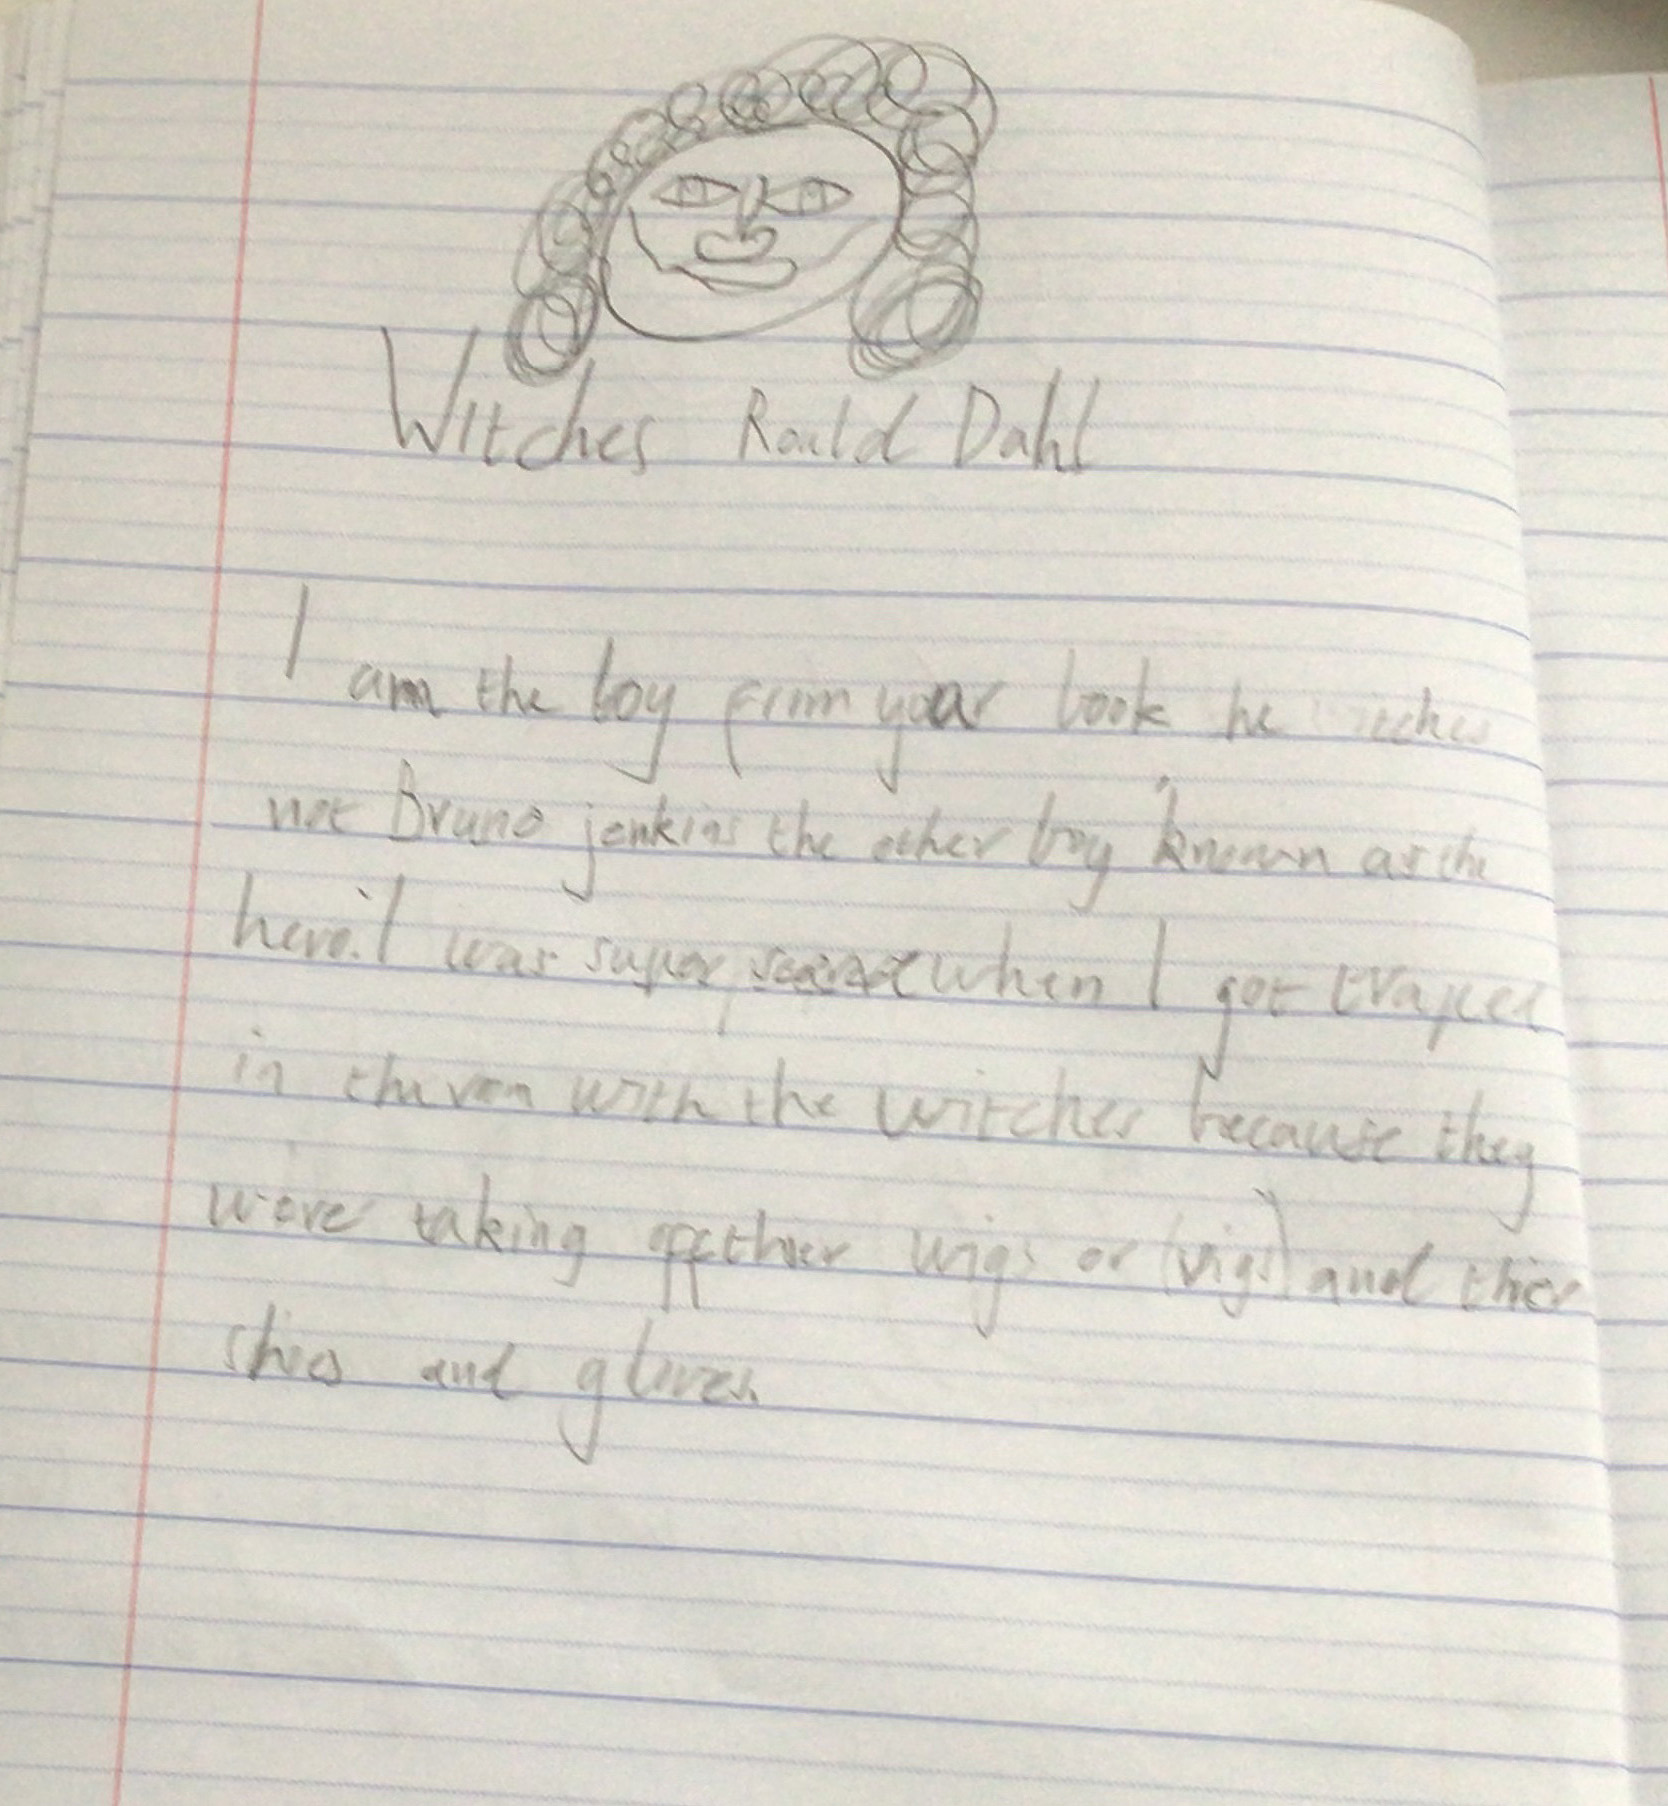 Witches Roald Dahl
I am the boy from your book he itches
not Bruno jenkins the other boy known as the
hero. I was super when I got traped
in the van with the witches because they
were taking off thier wigs or (vigs) and thier
shoes and gloves.